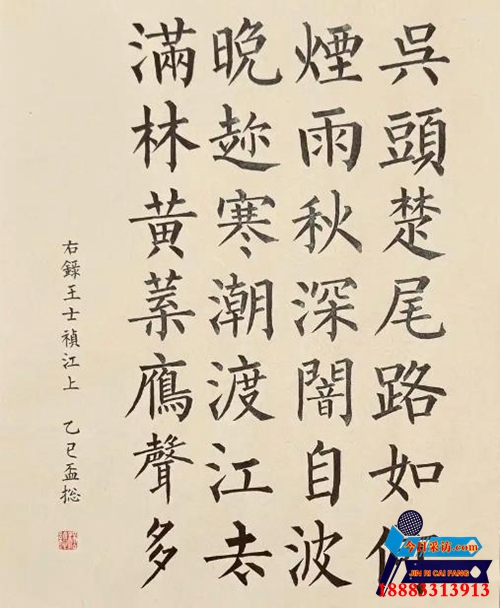 吳頭楚尾路如何
煙雨秋深闇自波
晚趂寒潮渡江去
滿林黃葉鴈聲多
右錄王士禎江上 乙巳孟
今日采访.com
JIN RI CAI FANG
18883313913